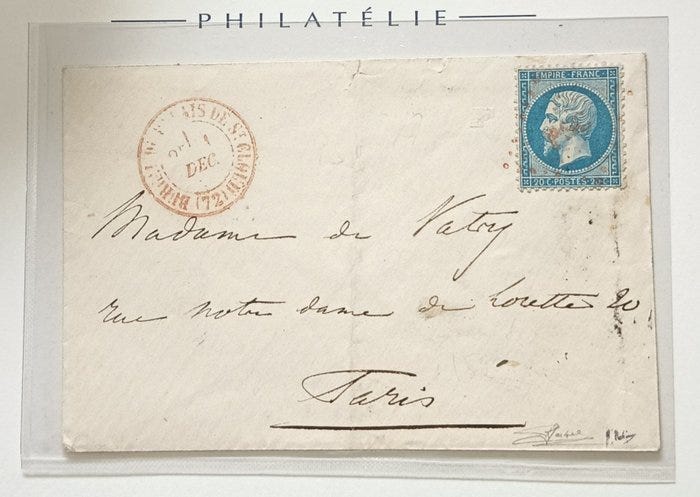 PHILATÉLIE
EMPIRE FRANC
20 C POSTES 20 C
BUREAU DU PALAIS DE ST CLOUD (72)
1
DEC.
Madame de Vatry
rue notre dame de Lorette 20
Paris